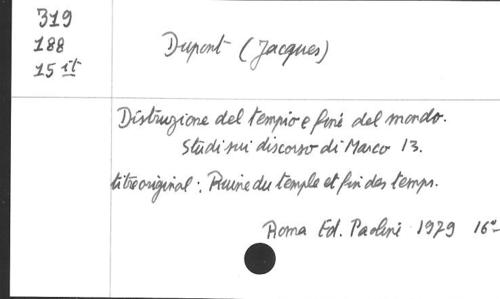 319
188
15 it
Dupont (Jacques)
Distruzione del tempio e fine del mondo.
Studi sui discorso di Marco 13.
titre original : Ruine du temple et fin des temps.
Roma Ed. Paoline 1979 16°